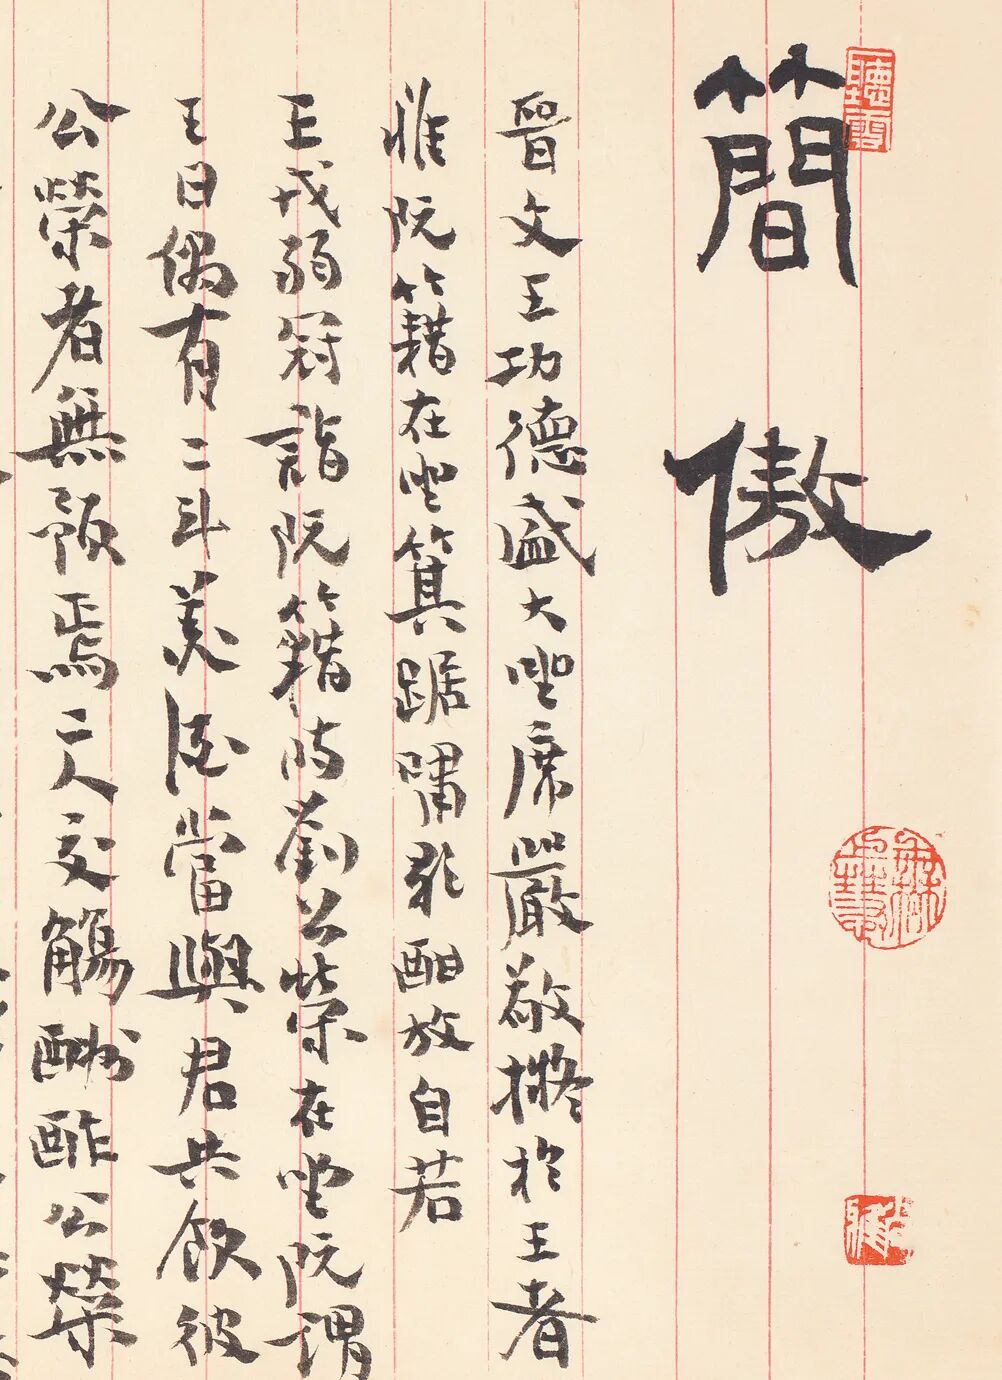 簡傲
聽雪
晉文王功德盛大坐席嚴敬擬於王者
惟阮籍在坐箕踞嘯歌酣放自若
王戎弱冠詣阮籍時劉公榮在坐阮謂
王曰偶有二斗美酒當與君共飲彼
公榮者無預焉二人交觴酬酢公榮